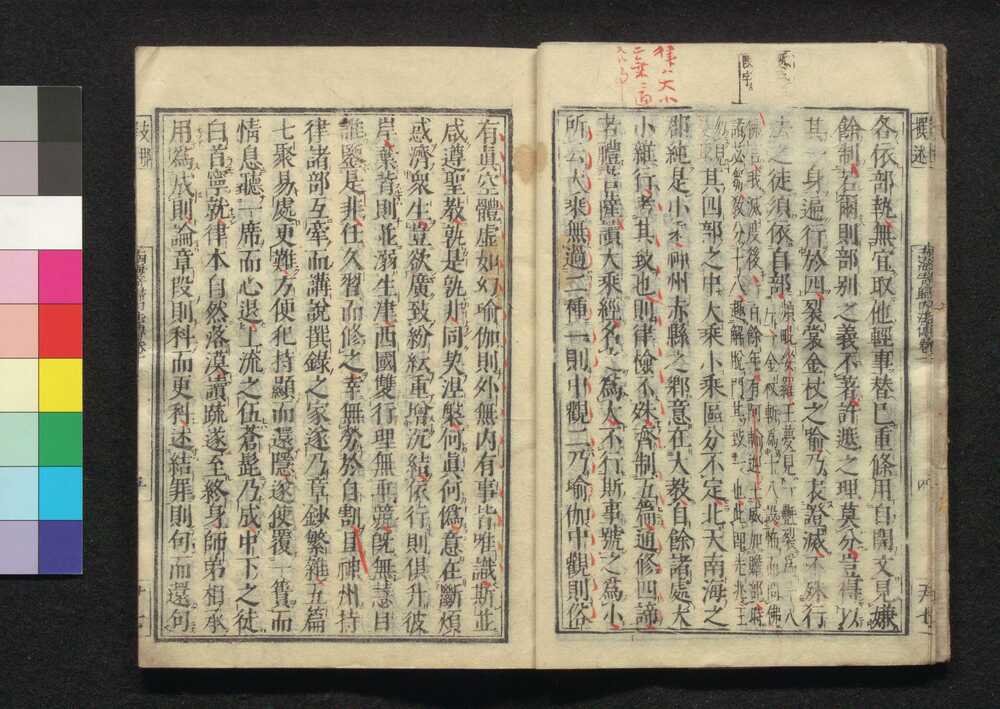 各依部執無宜取他輕事替己重條用自開文見嫌
餘制若爾則部別之義不著許遮之理莫分豈得以
其一身遍行於四裂裳金杖之喩乃表證滅不殊行
法之徒須依自部
頻毗娑羅王夢見一㲲裂爲十八
片一金杖斬爲十八段怖而問佛
佛言我滅度後一百餘年有阿輸迦王威加贍部時
諸苾芻教分十八趣解脫門其致一也此即先兆王
勿見
其四部之中大乘小乘區分不定北天南海之
郡純是小乘神州赤縣之鄉意在大教自餘諸處大
小雜行考其致也則律儉不殊齊制五篇通修四諦
若禮菩薩讀大乘經名之爲大不行斯事號之爲小
所云大乘無過二種一則中觀二乃瑜伽中觀則俗
有眞空體虛如幻瑜伽則外無内有事皆唯識斯並
咸遵聖教孰是孰非同契涅槃何眞何僞意在斷煩
惑濟衆生豈欲廣致紛紜重增沈結依行則俱升彼
岸棄背則並溺生津西國雙行理無乖競旣無慧目
誰鑒是非任久習而修之幸無勞於自割且神州持
律諸部互牽而講說撰錄之家遂乃章鈔繁雜五篇
七聚易處更難方便犯持顯而還隱遂使覆一簣而
情息聽一席而心退上流之伍蒼髭乃成中下之徒
白首寧就律本自然落漠讀疏遂至終身師弟相承
用爲成則論章段則科而更科述結罪則句而還句